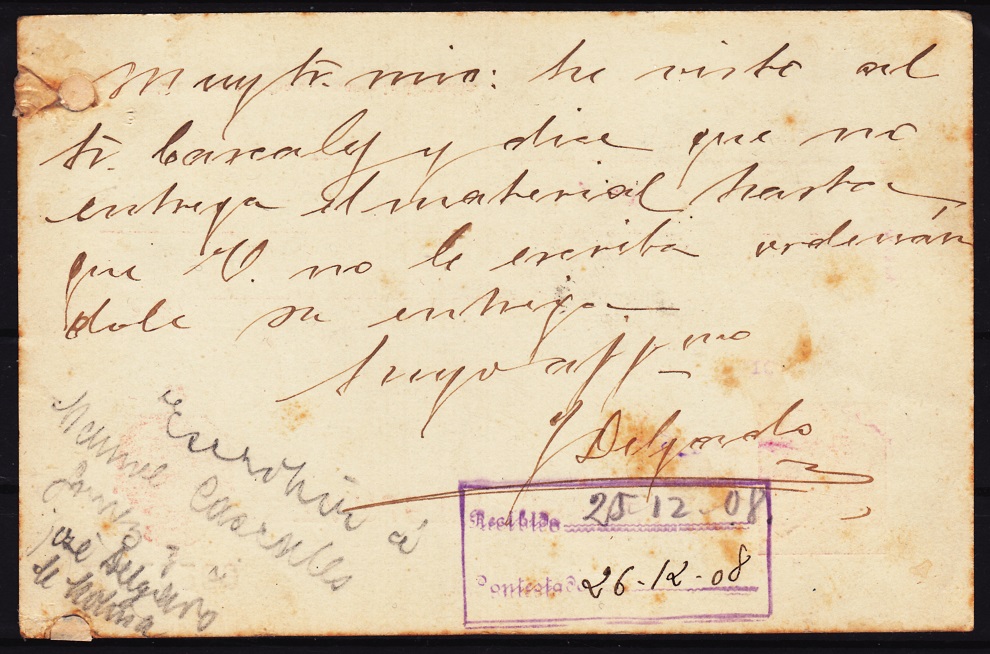 Muy Sr. mio: he visto al
Sr. Cascaly y dice que no
entrega el material hasta
que V. no le escriba ordenán
dole su entrega
Suyo aff mo
J Delgado
Escribir á
Manuel
José Delgado
de Molina
Recibido 25-12-08
Contestado 26-12-08